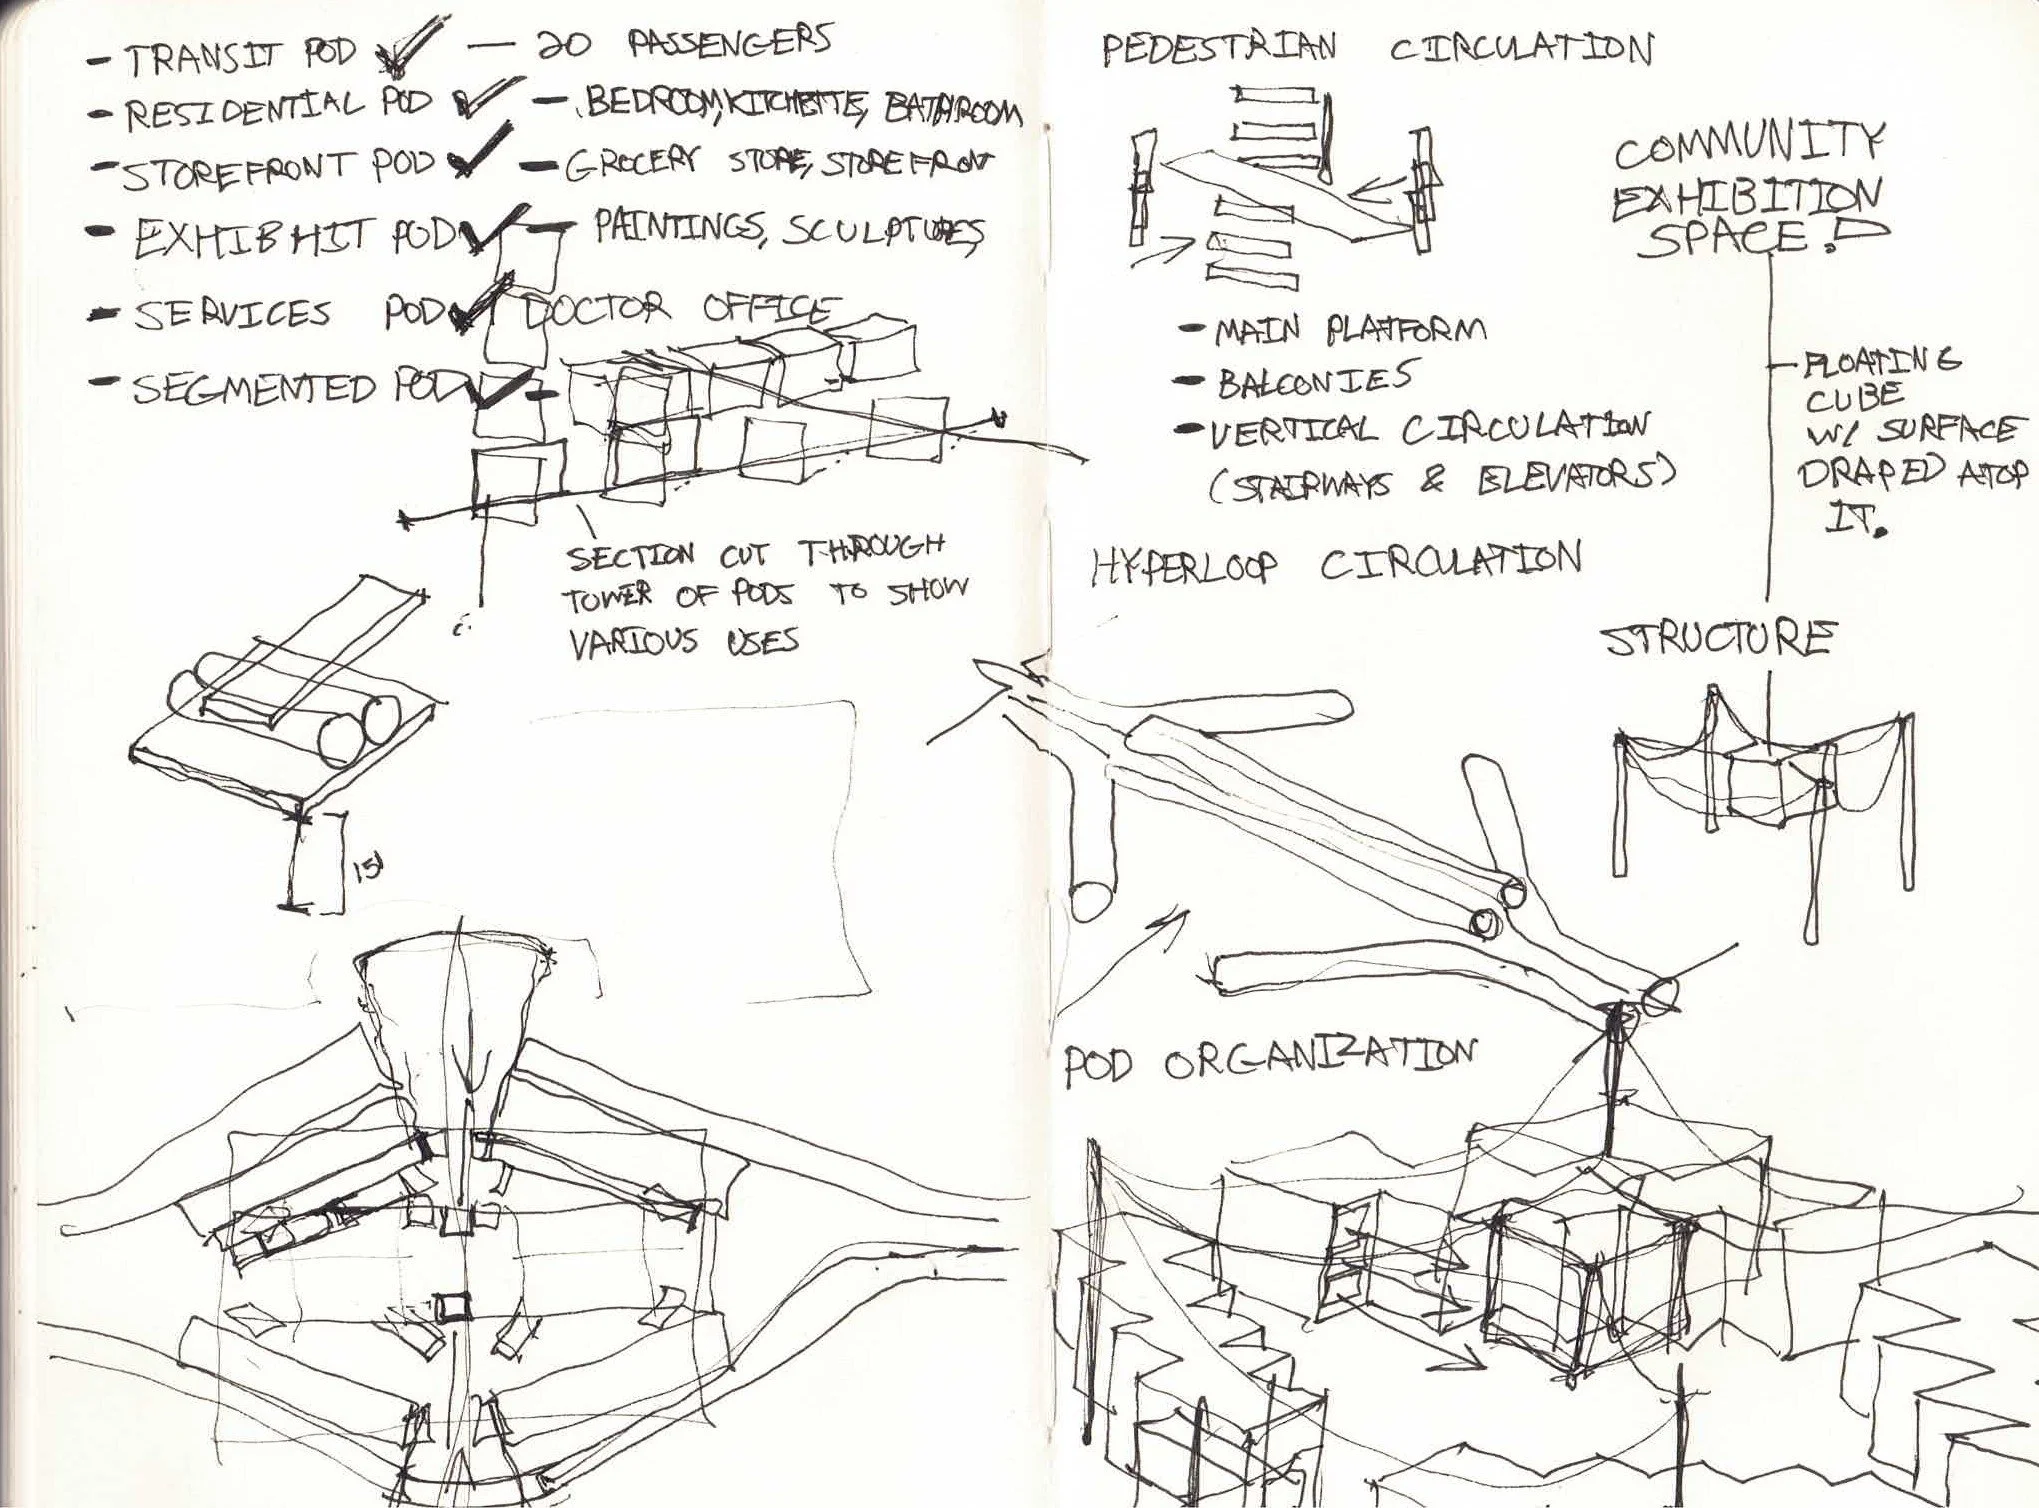 - TRANSIT POD ✓ — 20 PASSENGERS
- RESIDENTIAL POD ✓ - BEDROOM, KITCHETTE, BATHROOM
- STOREFRONT POD ✓ - GROCERY STORE, STOREFRONT
- EXHIBHIT POD ✓ - PAINTINGS, SCULPTURES
- SERVICES POD ✓ DOCTOR OFFICE
- SEGMENTED POD ✓ -
SECTION CUT THROUGH
TOWER OF PODS TO SHOW
VARIOUS USES
15'
PEDESTRIAN CIRCULATION
- MAIN PLATFORM
- BALCONIES
- VERTICAL CIRCULATION
(STAIRWAYS & ELEVATORS)
HYPERLOOP CIRCULATION
POD ORGANIZATION
COMMUNITY
EXHIBITION
SPACE.
- FLOATING
CUBE
W/ SURFACE
DRAPED ATOP
IT.
STRUCTURE